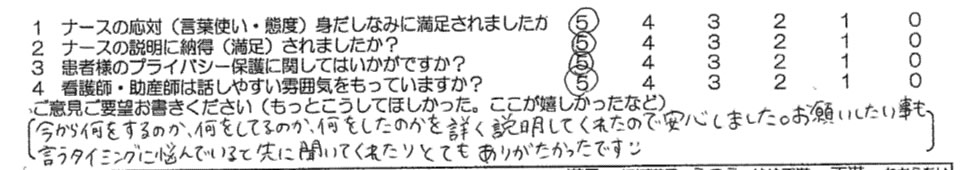 1 ナースの応対（言葉使い・態度）身だしなみに満足されましたか 5 4 3 2 1 0
2 ナースの説明に納得（満足）されましたか？ 5 4 3 2 1 0
3 患者様のプライバシー保護に関してはいかがですか？ 5 4 3 2 1 0
4 看護師・助産師は話しやすい雰囲気をもっていますか？ 5 4 3 2 1 0
ご意見ご要望お書きください（もっとこうしてほしかった。ここが嬉しかったなど）
今から何をするのか、何をしてるのか、何をしたのかを詳く説明してくれたので安心しました。お願いしたい事も
言うタイミングに悩んでいると先に聞いてくれたりとてもありがたかったです